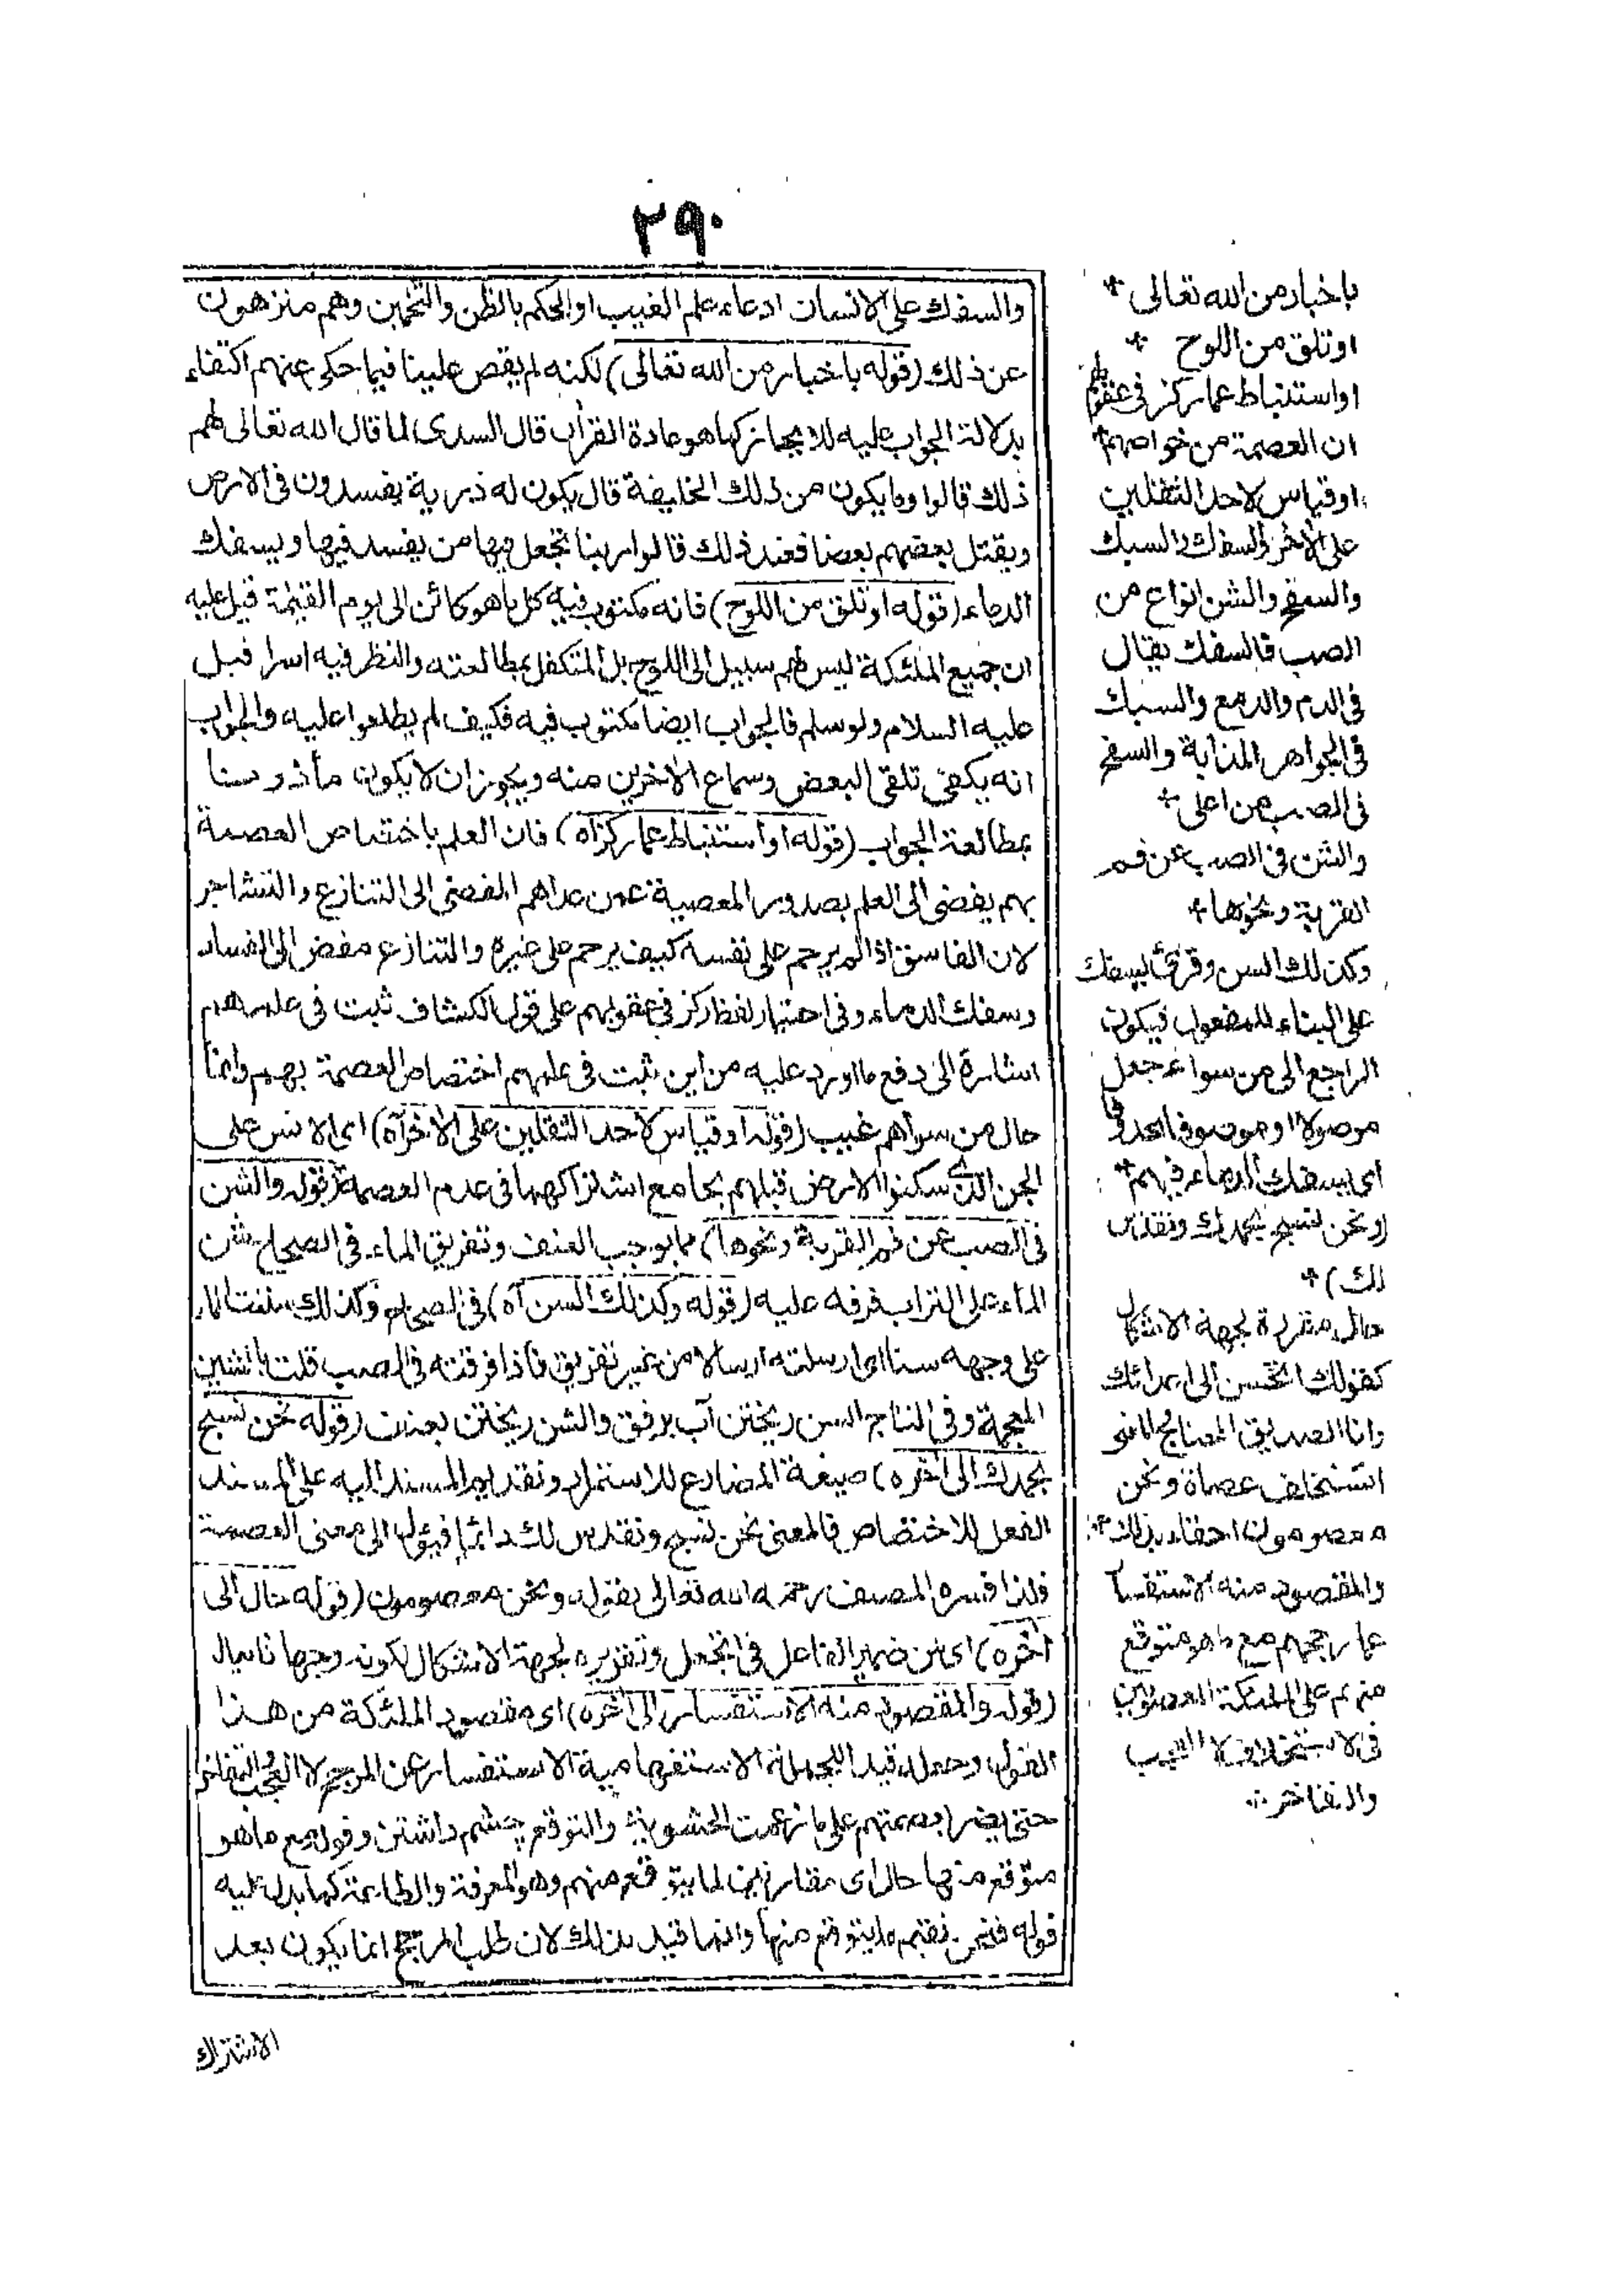 ٢٩٠
والسفك على الانسان ادعاء علم الغيب او الحكم بالظن والتخمين وهم منزهون
عن ذلك (قوله باخبار من الله تعالى) لكنه لم يقص علينا فيما حكى عنهم اكتفاء
بدلالة الجواب عليه للايجاز كما هو عادة القرأن قال السدى لما قال الله تعالى لهم
ذلك قالوا وما يكون من ذلك الخليفة قال يكون له ذرية يفسدون فى الارض
ويقتل بعضهم بعضا فعند ذلك قالوا ربنا اتجعل فيها من يفسد فيها ويسفك
الدماء (قوله او تلق من اللوح) فانه مكتوب فيه كل ما هو كائن الى يوم القيٰمة قيل عليه
ان جميع الملئكة ليس لهم سبيل الى اللوح بل المتكفل بمطالعته والنظر فيه اسرافيل
عليه السلام ولو سلم فالجواب ايضا مكتوب فيه فكيف لم يطلعوا عليه والجواب
انه يكفى تلقى البعض وسماع الأخرين منه ويجوز ان لا يكون مأذونا
بمطالعة الجواب (قوله او استنباط عما ركز اه) فان العلم باختصاص العصمة
بهم يفضى الى العلم بصدور المعصية عمن عداهم المفضى الى التنازع والتشاجر
لان الفاسق اذا لم يرحم على نفسه كيف يرحم على غيره والتنازع مفض الى الفساد
وسفك الدماء وفى اختيار لفظ ركز فى عقولهم على قول الكشاف ثبت فى علمهم
اشارة الى دفع ما اورد عليه من اين ثبت فى علمهم اختصاص العصمة بهم وانما
حال من سواهم غيب (قوله او قياس لاحد الثقلين على الأخر آه) اى الانس على
الجن الذى سكنوا الارض قبلهم بجامع اشتراكهما فى عدم العصمة (قوله والشن
فى الصب عن فم القربة ونحوها) مما يوجب العنف وتفريق الماء فى الصحاح شن
الماء على التراب فرقه عليه (قوله وكذلك السن آه) فى الصحاح وكذلك سننت الماء
على وجهه سنا اى ارسلته ارسالا من غير تفريق فاذا فرقته فى الصب قلت بالشين
المعجمة وفى التاج السن ريختن آب برفق والشن ريختن بعنف (قوله نحن نسبح
بحمدك الى أخره) صيغة المضارع للاستمرار وتقديم المسند اليه على المسند
الفعل للاختصاص فالمعنى نحن نسبح ونقدس لك دائما فيؤل الى معنى العصمة
فلذا فسره المصنف رحمه الله تعالى بقوله ونحن معصومون (قوله حال الى
أخره) اى من ضمير الفاعل فى اتجعل وتقريره لجهة الاشكال لكونه وجها ثانيا
(قوله والمقصود منه الاستفسار الى أخره) اى مقصود الملئكة من هذا
القول وجعله قيدا للجملة الاستفهامية الاستفسار عن المرجح لا العجب والتفاخر
حتى يضر بعصمتهم على ما زعمت الحشوية والتوقع چشم داشتن وقوله مع ما هو
متوقع منها حال اى مقارنين لما يتوقع منهم وهو المعرفة والطاعة كما يدل عليه
قوله فنحن نقيم ما يتوقع منها وانما قيد بذلك لان طلب المرجح انما يكون بعد
الاشتراك
باخبار من الله تعالى
او تلق من اللوح
او استنباط عما ركز فى عقولهم
ان العصمة من خواصهم
او قياس لاحد الثقلين
على الأخر والسفك والسبك
والسفح والشن انواع من
الصب فالسفك يقال
فى الدم والدمع والسبك
فى الجواهر المذابة والسفح
فى الصب من اعلى
والشن فى الصب عن فم
القربة ونحوها
وكذلك السن وقرئ يسفك
على البناء للمفعول فيكون
الراجع الى من سواء جعل
موصولا او موصوفا محذوفا
اى يسفك الدماء فيهم
(ونحن نسبح بحمدك ونقدس
لك)
حال مقررة لجهة الاشكال
كقولك اتحسن الى اعدائك
وانا الصديق المحتاج والمعنى
اتستخلف عصاة ونحن
معصومون احقاء بذلك
والمقصود منه الاستفسار
عما رجحهم مع ما هو متوقع
منهم على الملئكة المعصومين
فى الاستخلاف لا العجب
والتفاخر